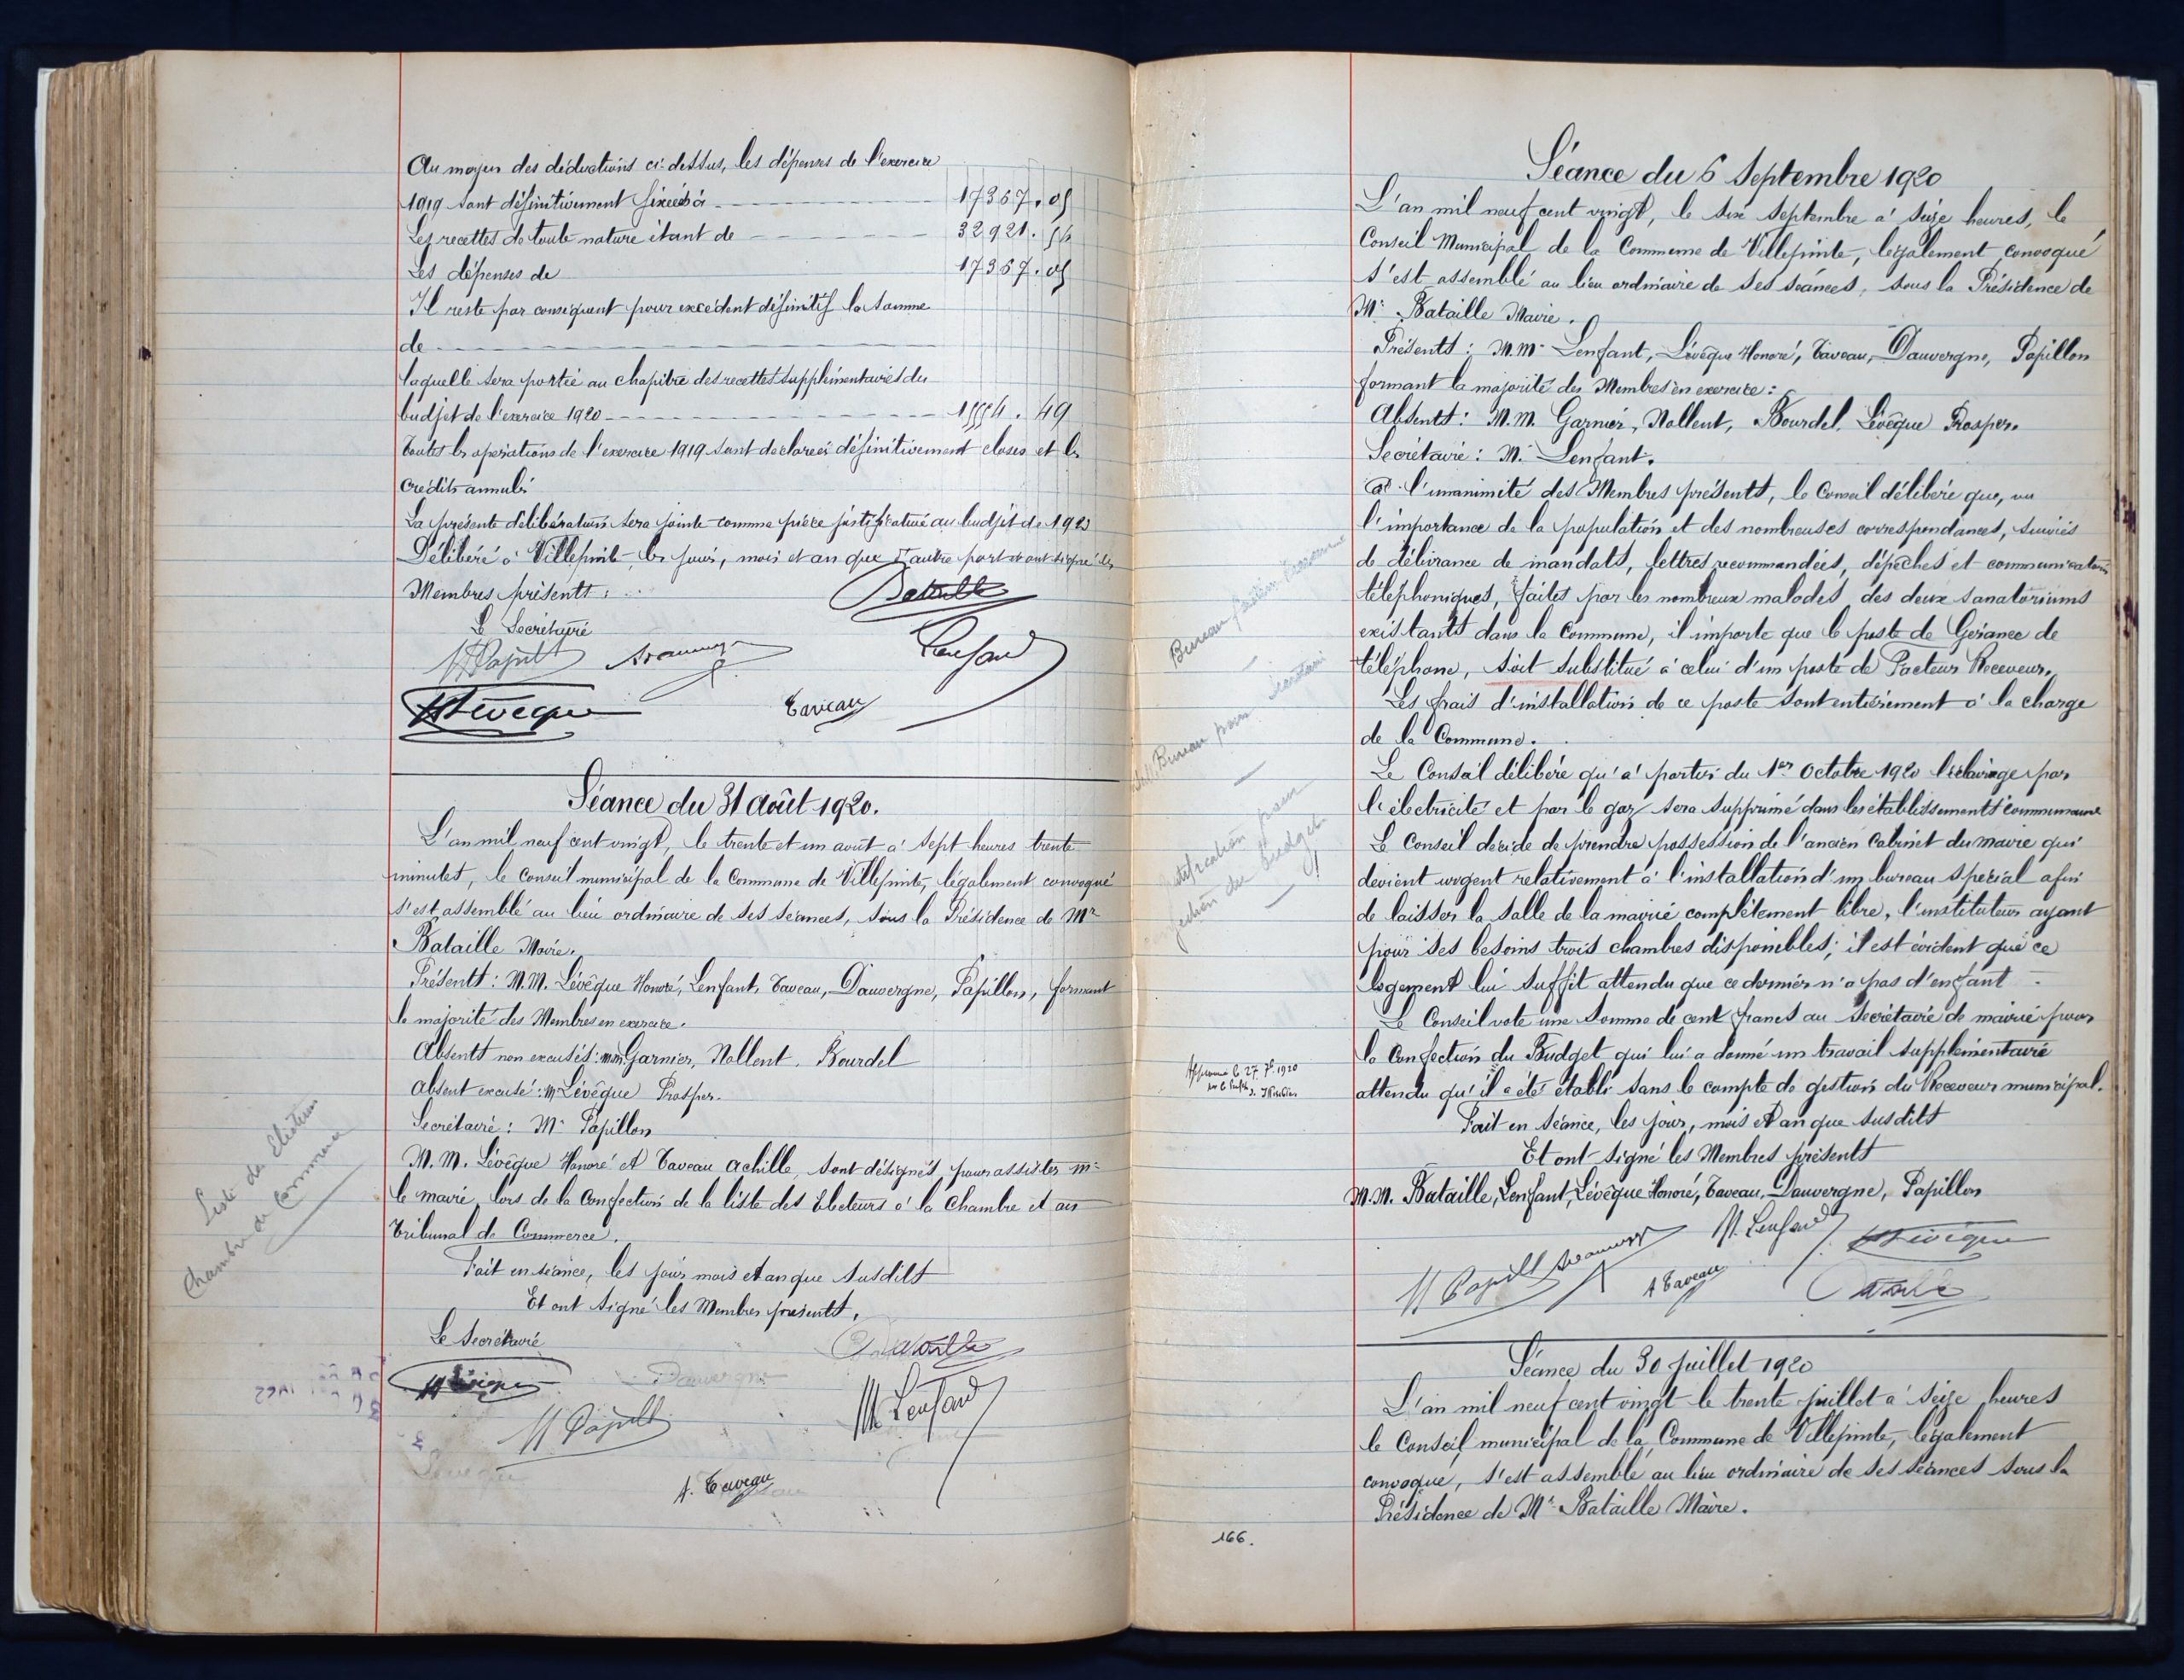 Au moyen des déductions ci-dessus, les dépenses de l'exercice
1919 sont définitivement fixées à 17367.05
Les recettes de toute nature étant de 32921.54
Les dépenses de 17367.05
Il reste par conséquent pour excédent définitif la somme
de
laquelle sera portée au chapitre des recettes supplémentaires du
budjet de l'exercice 1920 15554.49
Toutes les opérations de l'exercice 1919 sont déclarées définitivement closes et les
crédits annulés
La présente délibération sera jointe comme pièce justificative au budjet de
Délibéré à Villepinte les jours, mois et an que d'autre part et ont signé les
Membres présents :
Bataille
Le Secrétaire
H Papill
Lenfant
H Leveque
Taveau
Séance du 31 Août 1920.
L'an mil neuf cent vingt, le trente et un août à sept heures trente
minutes, le Conseil municipal de la Commune de Villepinte, légalement convoqué
s'est assemblé au lieu ordinaire de ses séances, sous la Présidence de Mr
Bataille Maire.
Présents : M.M. Lévêque Honoré, Lenfant, Taveau, Dauvergne, Papillon, formant
la majorité des Membres en exercice.
Absents non excusés : MM Garnier, Nollent, Bourdel
Absent excusé : Mr Lévêque Prosper.
Secrétaire : Mr Papillon
M.M. Lévêque Honoré et Taveau Achille, sont désignés pour assister Mr
le maire, lors de la Confection de la liste des Electeurs à la Chambre et au
Tribunal de Commerce.
Liste des Electeurs
Chambre de Commerce
Fait en séance, les jours mois et an que susdits
Et ont signé les Membres présents.
Le Secrétaire
Bataille
H Leveque
Dauvergne
H Papill
M Lenfant
A. Taveau
Séance du 6 Septembre 1920
L'an mil neuf cent vingt, le six Septembre à seize heures, le
Conseil Municipal de la Commune de Villepinte, légalement convoqué
s'est assemblé au lieu ordinaire de ses séances, sous la Présidence de
Mr Bataille Maire.
Présents : M.M. Lenfant, Lévêque Honoré, Taveau, Dauvergne, Papillon
formant la majorité des Membres en exercice :
Absents : M.M. Garnier, Nollent, Bourdel, Lévêque Prosper.
Secrétaire : M. Lenfant.
A l'unanimité des Membres présents, le Conseil délibère que, vu
l'importance de la population et des nombreuses correspondances, suivies
de délivrance de mandats, lettres recommandées, dépêches et communications
téléphoniques, faites par les nombreux malades des deux sanatoriums
existants dans la Commune, il importe que le poste de Gérance de
téléphone, soit substitué à celui d'un poste de Facteur Receveur.
Bureau facteur receveur
Les frais d'installation de ce poste sont entièrement à la charge
de la Commune.
Le Conseil délibère qu'à partir du 1er Octobre 1920 l'éclairage par
l'électricité et par le gaz sera supprimé dans les établissements communaux
Le Conseil décide de prendre possession de l'ancien Cabinet du maire qui
devient urgent relativement à l'installation d'un bureau spécial afin
de laisser la salle de la mairie complètement libre, l'instituteur ayant
pour ses besoins trois chambres disponibles ; il est évident que ce
logement lui suffit attendu que ce dernier n'a pas d'enfant
Bureau pour
Le Conseil vote une somme de cent francs au Secrétaire de mairie pour
la Confection du Budget qui lui a donné un travail supplémentaire
attendu qu'il a été établi sans le compte de gestion du Receveur municipal.
pour
du Budget
Approuvé le 27 7bre 1920
Fait en séance, les jour, mois et an que susdits
Et ont signé les Membres présents
M.M. Bataille, Lenfant, Lévêque Honoré, Taveau, Dauvergne, Papillon
M. Lenfant
H Leveque
H Papill
A Taveau
Bataille
Séance du 30 Juillet 1920
L'an mil neuf cent vingt le trente juillet à seize heures
le Conseil municipal de la Commune de Villepinte, légalement
convoqué, s'est assemblé au lieu ordinaire de ses séances sous la
Présidence de Mr Bataille Maire.
166.